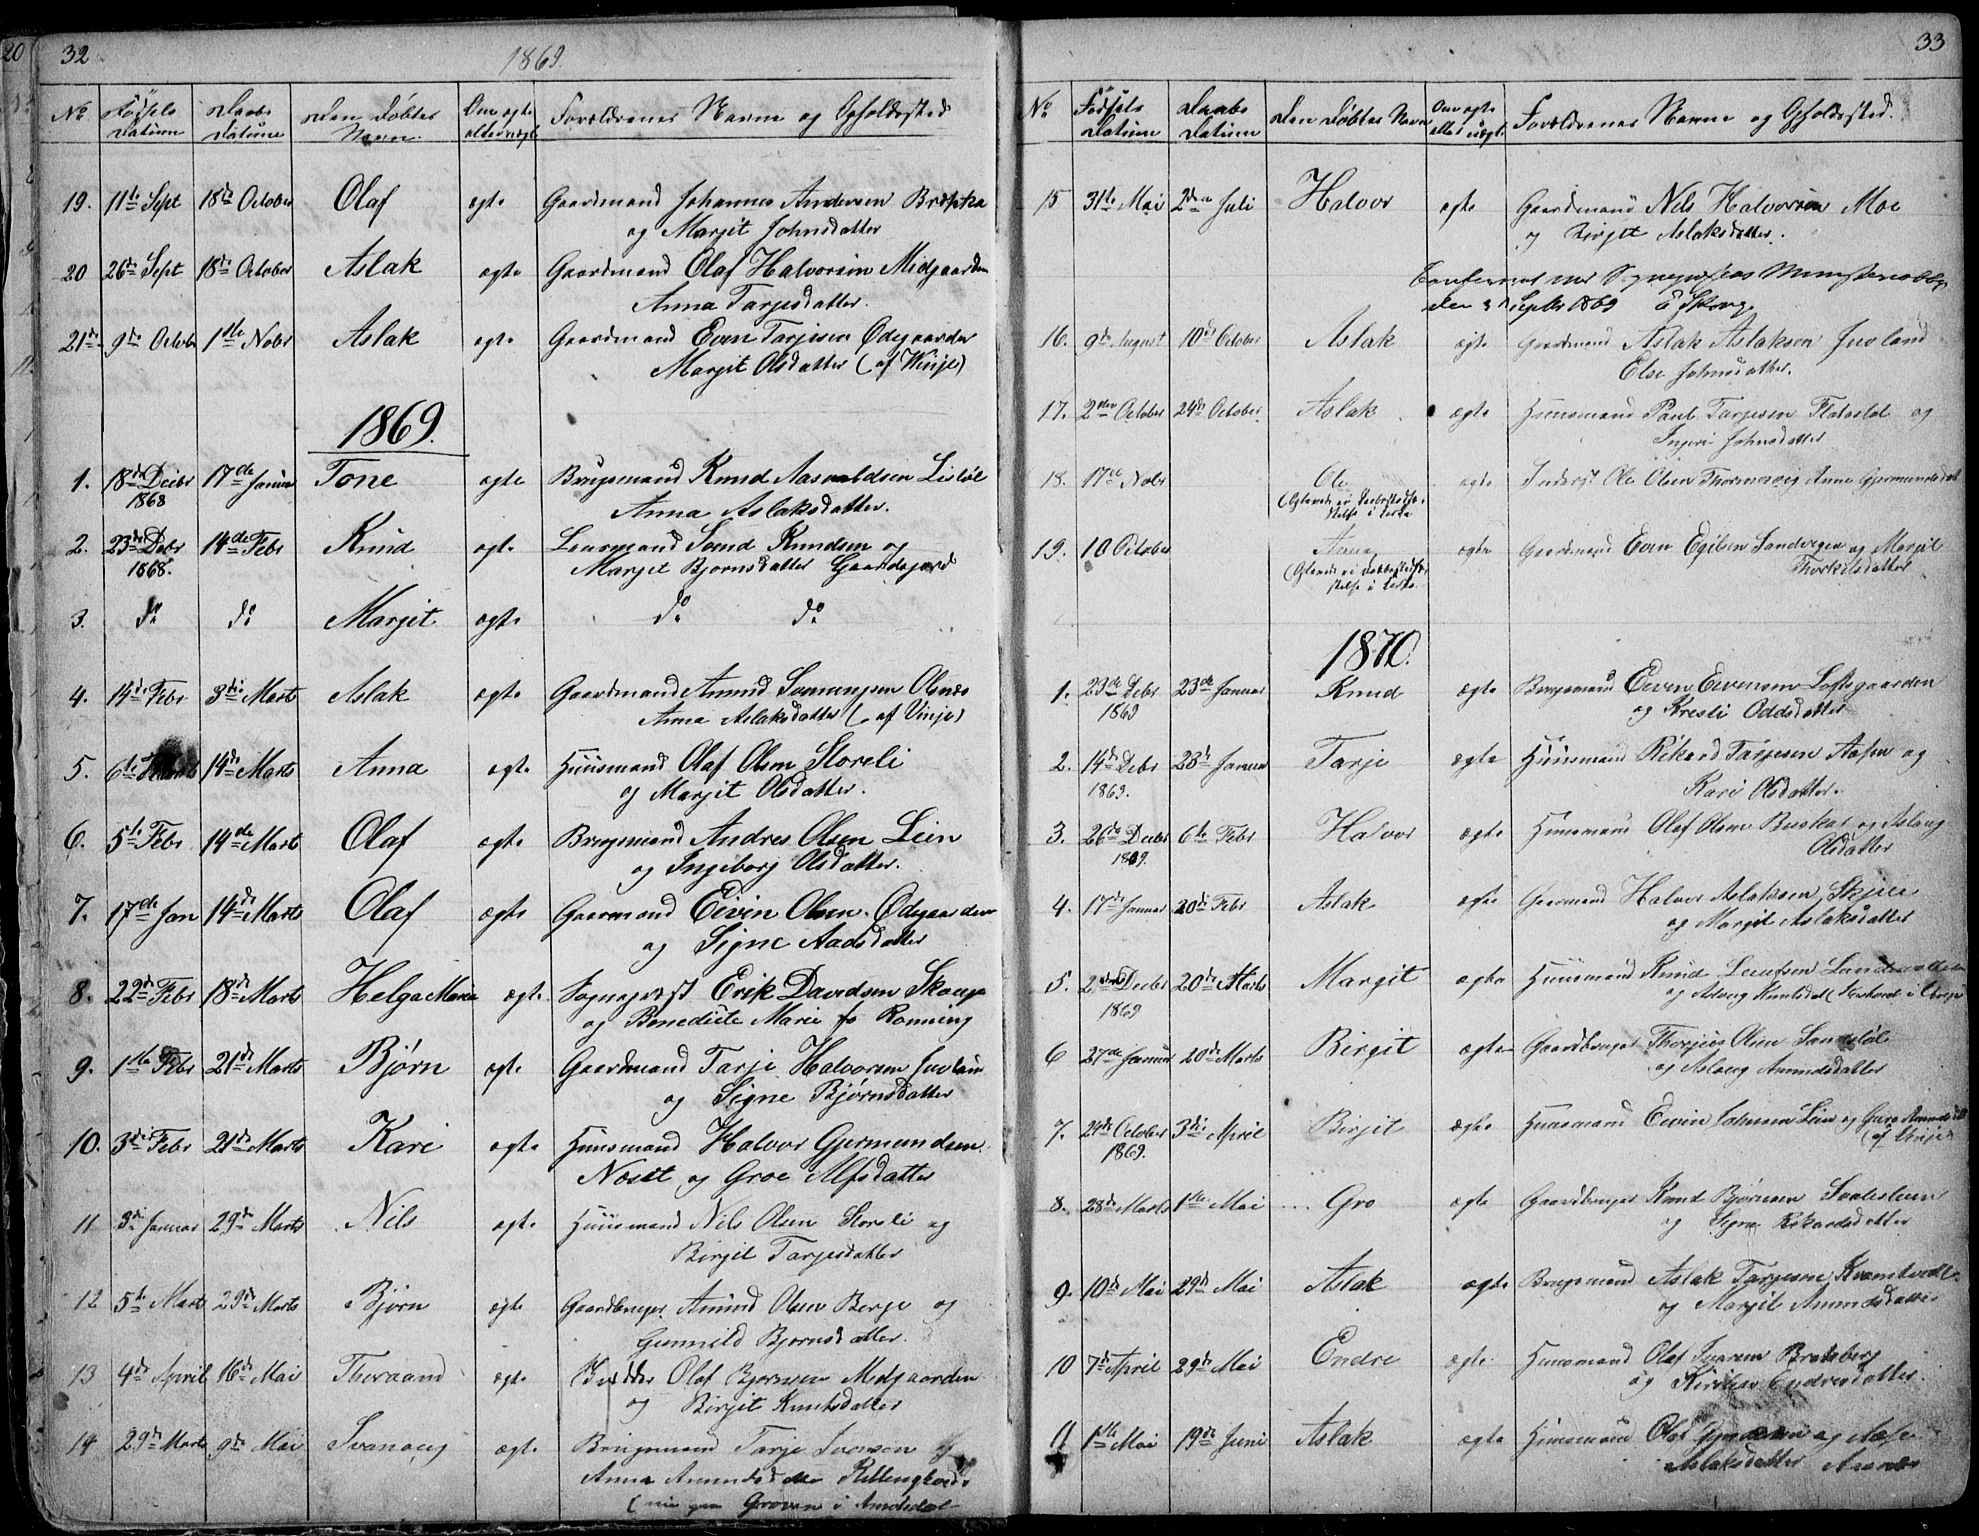 32
1869.
No Fødsels Datum Daabs Datum Den Døbtes Navn Om ægte eller uægte Forældrenes Navne og Opholdssted
19. 11te Sept 18de October Olaf ægte Gaardmand Johannes Andersen
og Margit Johnsdatter
20 26de Sept 18de October Aslak ægte Gaardmand Olaf Halvorsen Midgaarden
Anna Tarjesdatter.
21de 9de Octob 1ste Nobr Aslak ægte Gaardmand Even Tarjesen Ødegaarden
Margit Olsdatter (af Winje)
1869.
1. 18de Decbr 17de Januar Tone ægte Brugsmand Knud Aasmuldsen Listøl
1868 Anna Aslaksdatter.
2. 23de Debr 14de Febr Knud ægte Lensmand Svend Knudsen og
1868. Margit Bjørnsdatter Gaardsjord
3. do do Margit ægte do do
4. 14de Febr 3die Marts Aslak ægte Gaardmand Amund Olsnæs
Anna Aslaksdatter (af Vinje)
5. 6te Marts 14de Marts Anna ægte Huusmand Olaf Olsen Storeli
og Margit Olsdatter.
6. 5te Febr 14de Marts Olaf ægte Brugsmand Andres Olsen Lein
og Ingeborg Olsdatter.
7. 17de Jan 14de Marts Olaf ægte Gaarmand Eivin Olsen Ødegaarden
og Signe Aadsdatter
8. 22de Febr 18de Marts Helga Maria ægte Sognepræst Erik Davidsen Skauge
og Benedicte Marie fø Rønning
9. 1ste Febr 21de Marts Bjørn ægte Gaardmand Tarje Halvorsen Juvland
og Signe Bjørnsdatter
10. 3die Febr 21de Marts Kari ægte Huusmand Halvor Gjermundsen
Næset og Groe Alfsdatter
11 3die Januar 29de Marts Nils ægte Huusmand Nils Olsen Storeli og
Birgit Tarjesdatter
12 5te Marts 29de Marts Bjørn ægte Gaardbruger Amund Olsen Berge og
Gunnild Bjørnsdatter.
13 4de April 16de Mai Thoraand ægte Olaf Bjørnsen Midgaarden
og Birgit Knutsdatter
14 29de Marts 9de Mai Svanaug ægte Brugsmand Tarje Svensen og
Anna Amundsdatter
Groven i Amotsdal
33
No Fødsels Datum Daabs Datum Den Døbtes Navn Om ægte eller uægte Forældrenes Navne og Opholdssted.
15 31te Mai 2den Juli Halvor ægte Gaardmand Nils Halvorsen Moe
og Birgit Aslaksdatter.
Conferert med Sognepræstens Ministerialbog
den Septbr 1869 E Skauge
16. 9de August 10de October Aslak ægte Gaardmand Aslak Aslaksen Juvland
Else Johnsdatter.
17. 2den October 24de October Aslak ægte Huusmand Paul Tarjesen Flatastøl og
Ingeri Johnsdatter
18. 17de Nobr Ole ægte Inderst Ole Olsen Thormosvig Anne Gjermundsdat
19. 10 October Anna ægte Gaardmand Even Egilsen Sandvigen og Margit
Thorkilsdatter
1870.
1. 23de Debr 23de Januar Knud ægte Brugsmand Eiven Eivensen Loftsgaarden
1869 og Kresti Oddsdatter
2. 14de Debr 23de Januar Tarje ægte Huusmand Rikard Tarjesen Aasen og
1869. Kari Olsdatter.
3. 26de Decbr 6te Febr Halvor ægte Huusmand Olaf Olsen Buskas og Aslaug
1869. Olsdatter
4. 17de Januar 20de Febr Aslak ægte Gaarmand Halvor Aslaksen Skjeie
og Margit Aslaksdatter
5. 2den Decbr 20de Marts Margit ægte Huusmand Knud
1869 og Aslaug
6 27de Januar 20de Marts Birgit ægte Gaardbruger Thorjus Olsen Sandstøl
og Aslaug Amundsdatter
7. 24de October 3die April Birgit ægte Huusmand Eivin Johnsen Lien og Guro Amundsdtt
1869. (af Vinje)
8. 28de Marts 1ste Mai Gro ægte Gaardbruger Knud Bjørnsen
og Signe Rikardsdatter
9. 10de Mai 29de Mai Aslak ægte Brugsmand Aslak Tarjesen
og Margit Amundsdatter
10 7de April 29de Mai Endre ægte Huusmand Olaf Bratteberg
og Kirsten Endresdatter.
11 1ste Mai 19de Juni Aslak ægte Huusmand Olaf og Aase
Aslaksdatter